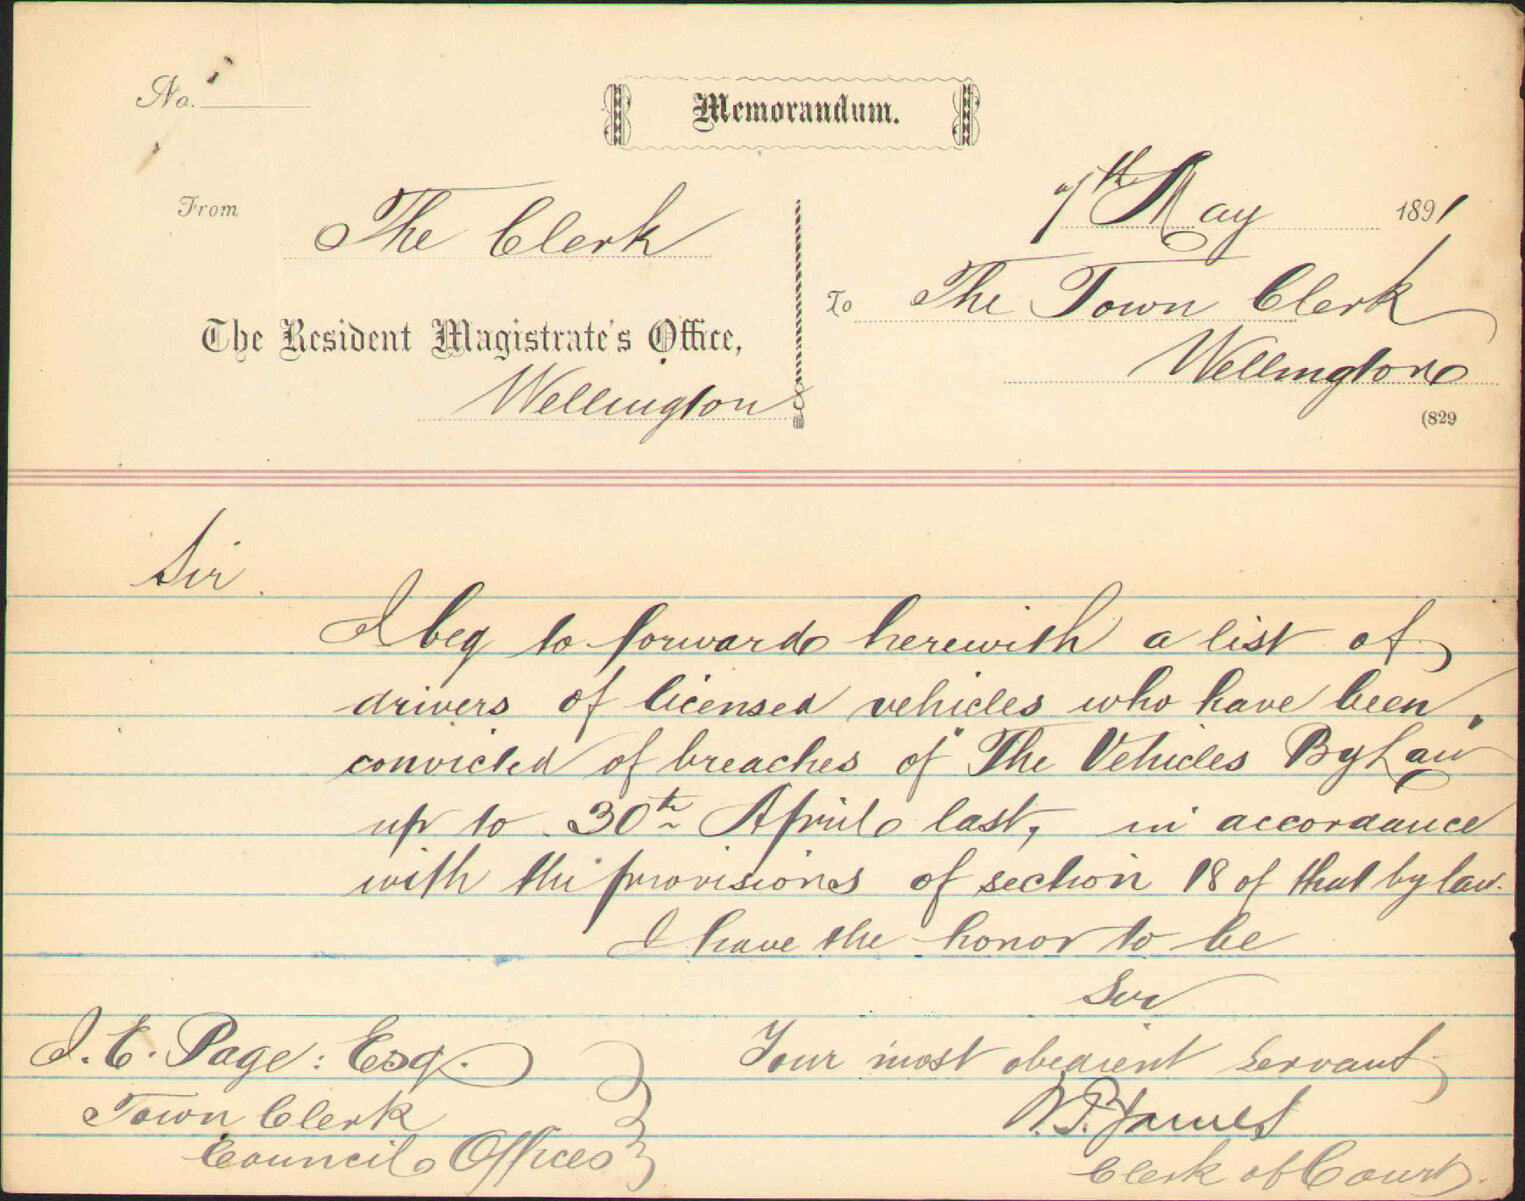 No.
Memorandum.
7th May 1891
From The Clerk
To The Town Clerk
The Resident Magistrate's Office,
Wellington
Wellington
(829
Sir
I beg to forward herewith a list of
drivers of licensed vehicles who have been
convicted of breaches of "The Vehicles By Law"
up to 30th April last, in accordance
with the provisions of section 18 of that by law.
I have the honor to be
Sir
Your most obedient servant
J. E. Page: Esq.
Town Clerk
Council Offices
James
Clerk of Court.